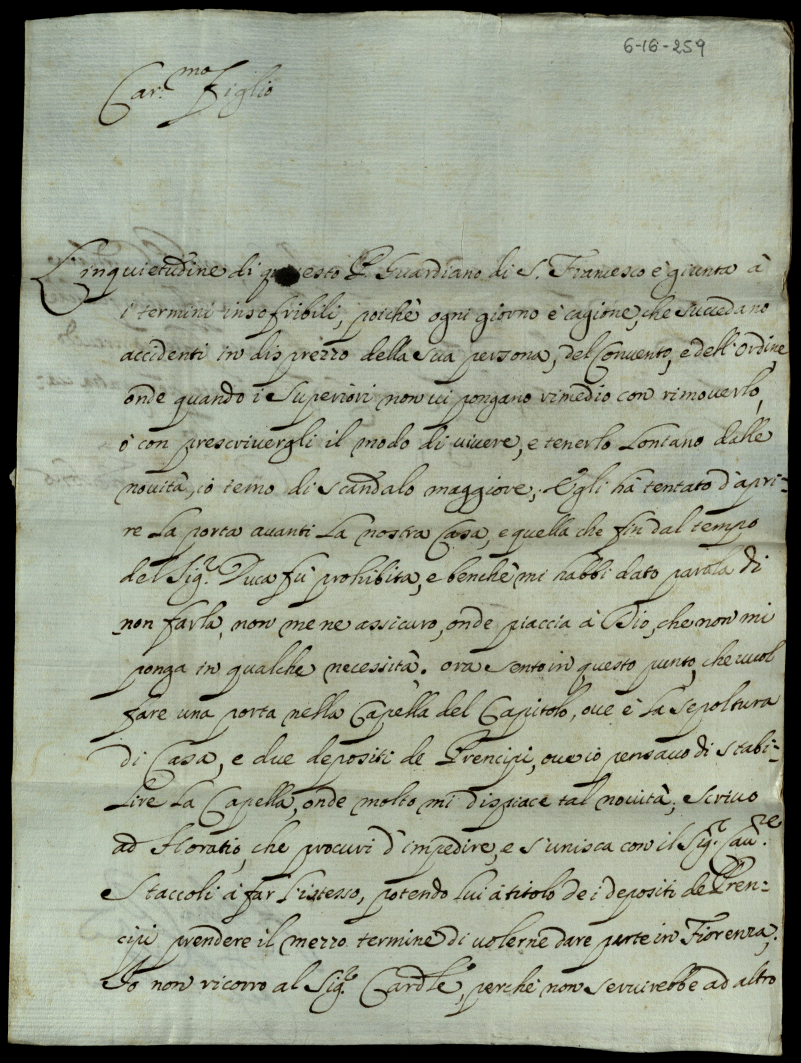 6-16-259
Car.mo Figlio
L'inquietudine di questo P. Guardiano di S. Francesco è giunta à
i termini insofribili, poiche ogni giorno è cagione, che succedano
accidenti in disprezzo della sua persona, del Convento, e dell'ordine,
onde quando i Superiori non ui pongano rimedio con rimouerlo,
ò con prescriuergli il modo di uiuere, e tenerlo Lontano dalle
nouità, io temo di scandalo maggiore; Egli hà tentato d'apri=
re La porta auanti La nostra Casa, e quella che fin dal tempo
del Sig.r Duca fù prohibita, e benche mi habbi dato parola di
non farla, non me ne assicuro, onde piaccia à Dio, che non mi
ponga in qualche necessità. ora sento in questo punto, che uuol
fare una porta nella Capella del Capitolo, oue è La sepoltura
di Casa, e due depositi de Prencipi, oue io pensauo di stabi=
Lire La Capella, onde molto mi dispiace tal nouità; scriuo
ad Horatio, che procuri d'impedire, e s'unisca con il Sig.r Cau.re
Staccoli à far L'istesso, potendo Lui à titolo de i depositi de Pren=
cipi prendere il mezzo termine di uolerne dare parte in Fiorenza;
Io non ricorro al Sig.r Card.le, perche non seruirebbe ad altro